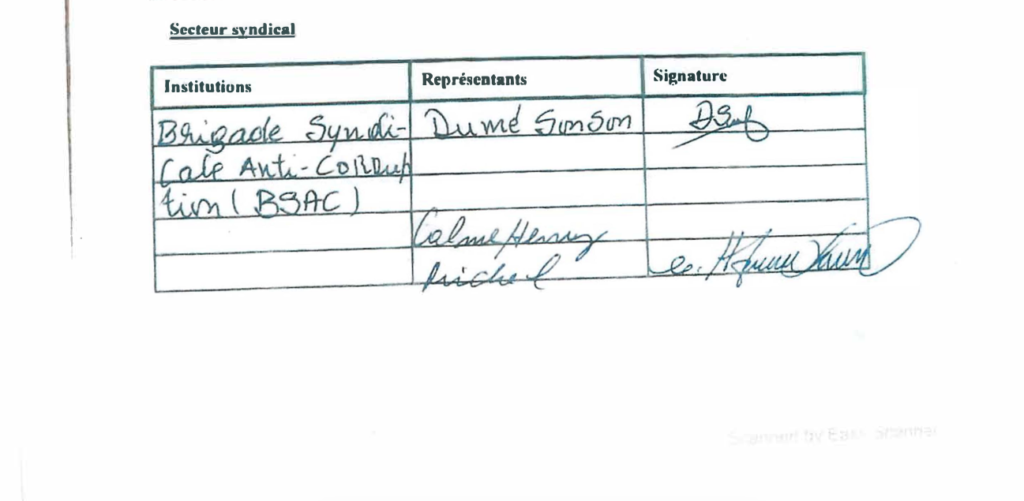 Secteur syndical
Institutions Représentants Signature
Brigade Syndi- Dumé SonSon
Cale Anti-CoRRup
tion (BSAC)
Calme Henry
Michel
Scanned by Easy Scanner